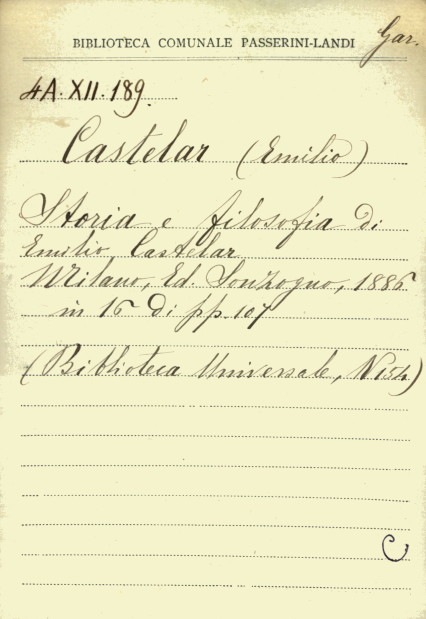 BIBLIOTECA COMUNALE PASSERINI-LANDI
Gar.
4A. XII. 189.
Castelar (Emilio)
Storia e filosofia di
Emilio Castelar
Milano, Ed. Sonzogno, 1886
in 16 di pp. 107
(Biblioteca Universale, N 154)
C